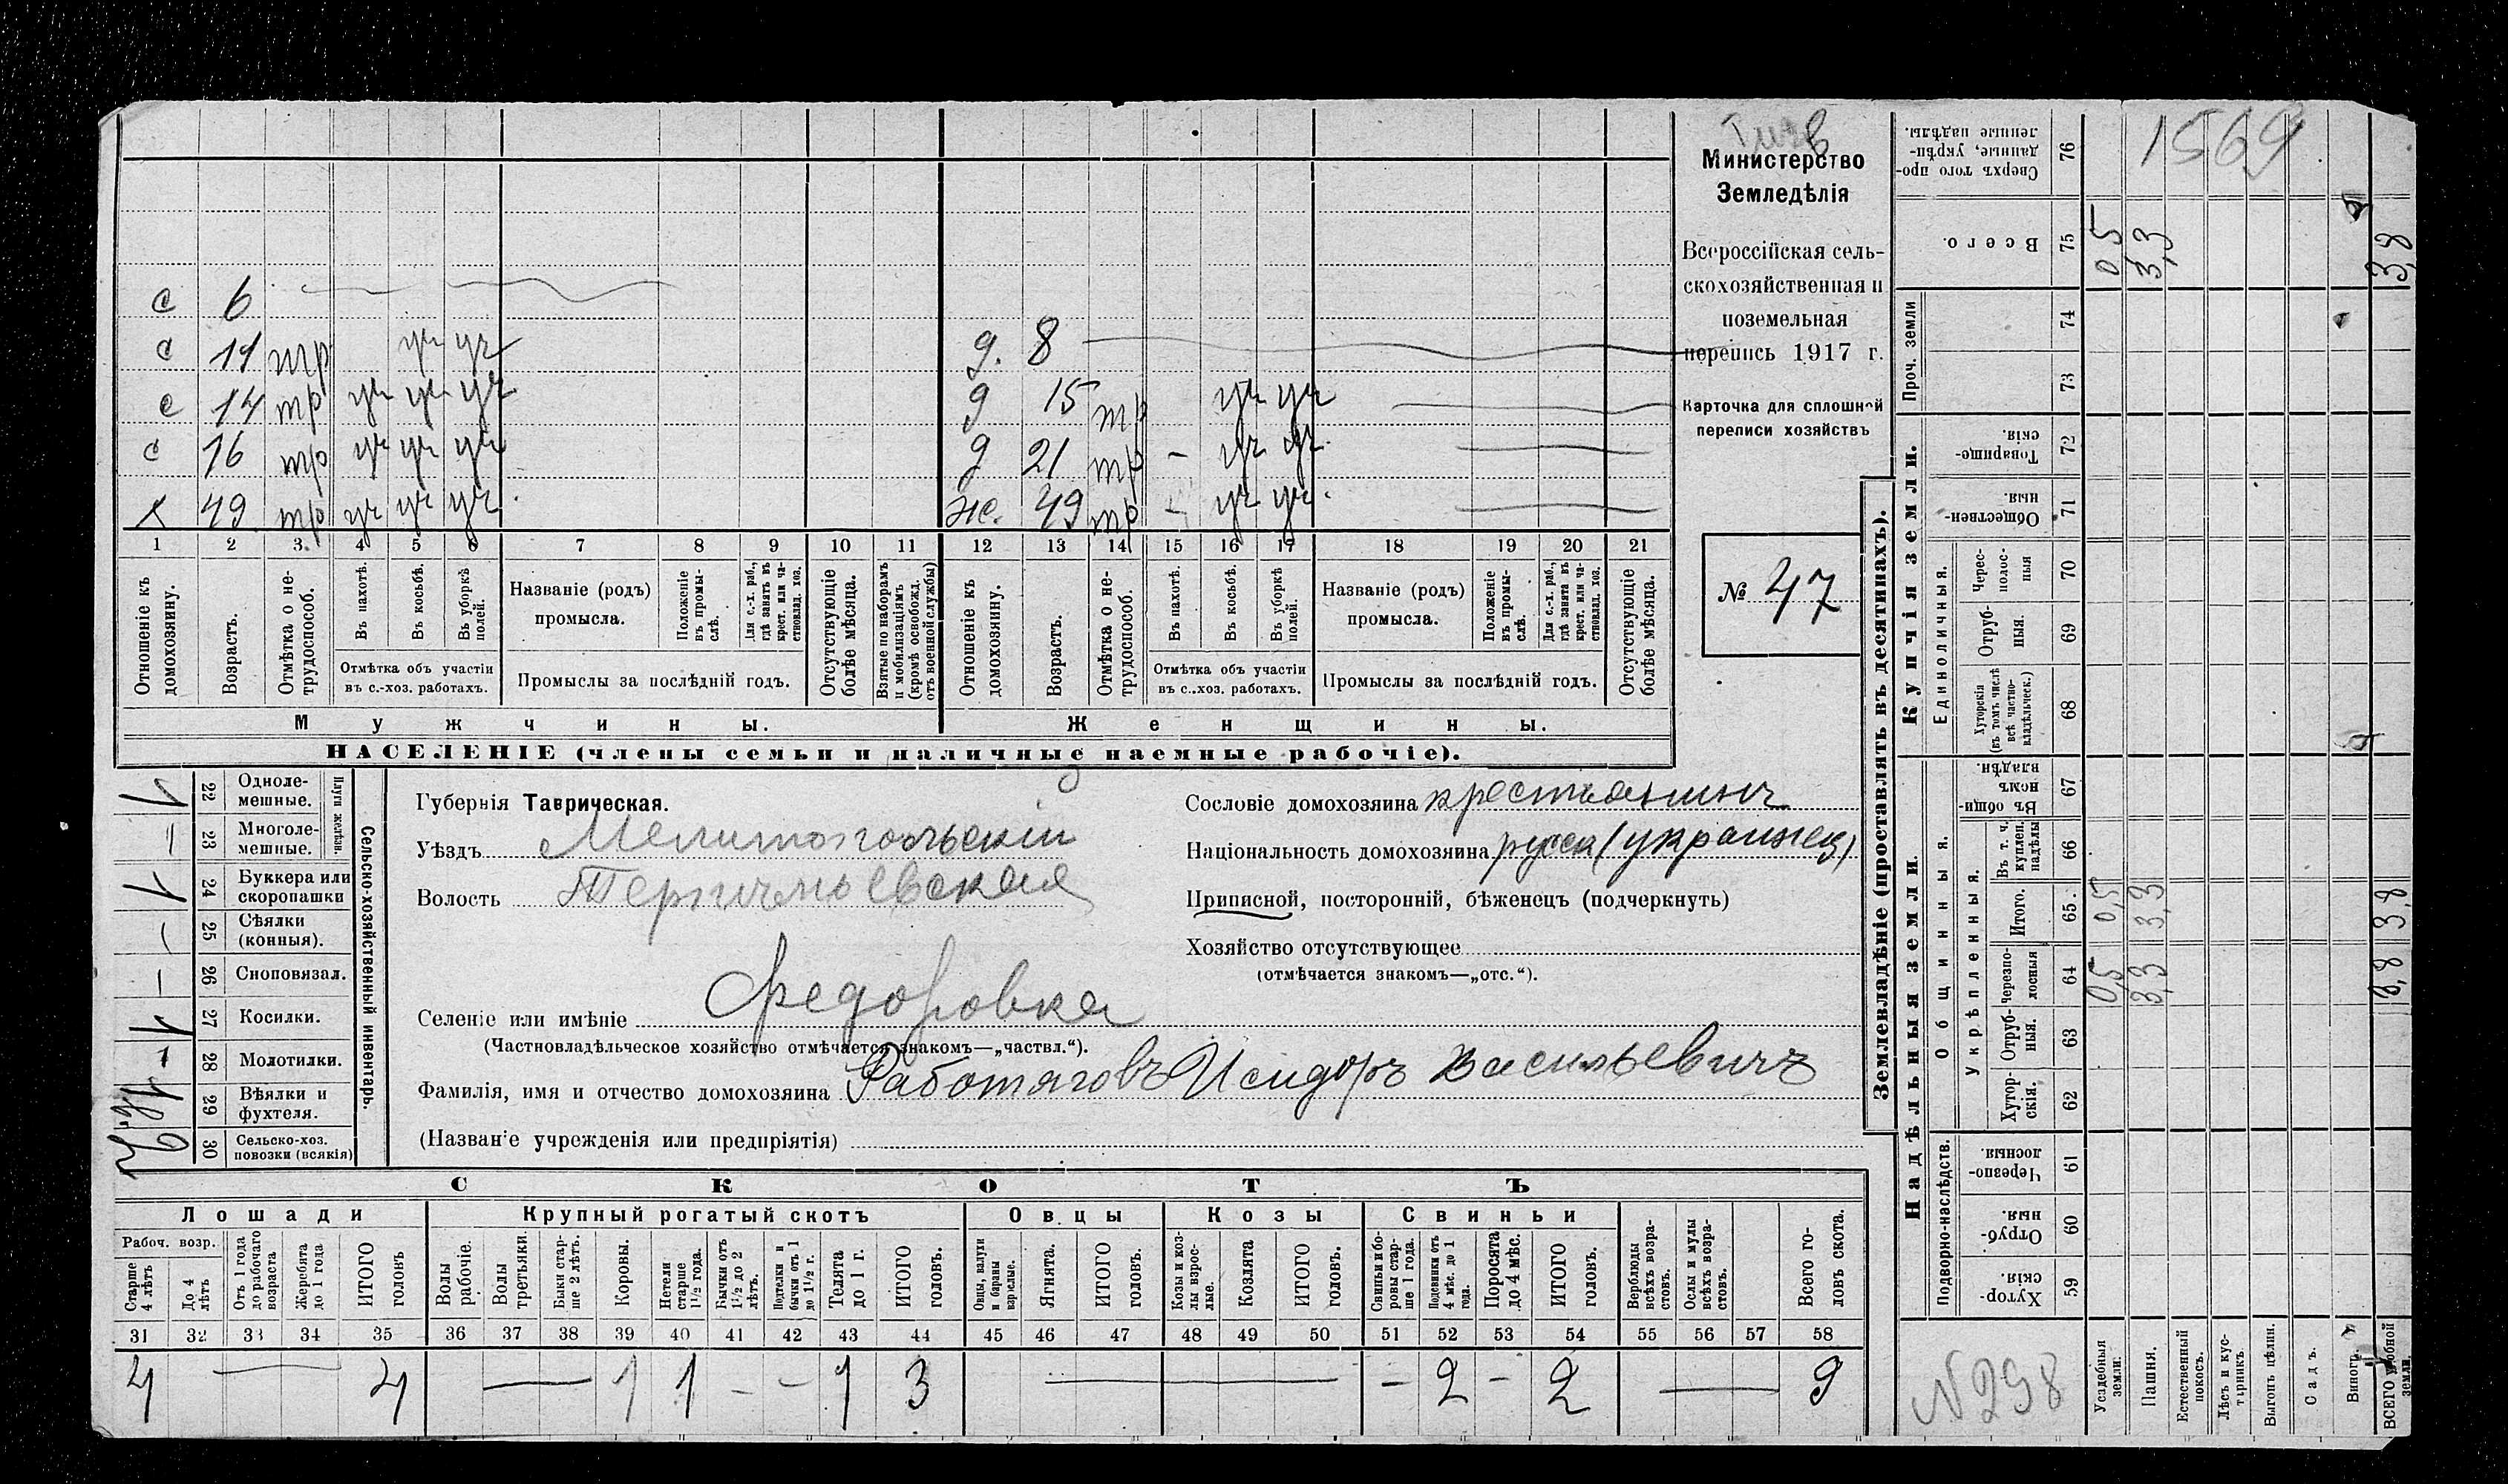 1569
Министерство
Земледѣлія
Всероссійская сель-
скохозяйственная и
поземельная
перепись 1917 г.
Карточка для сплошной
переписи хозяйствъ
№ 47
с 6
с 11 тр уч уч
с 14 тр уч уч уч
с 16 тр уч уч уч
х 49 тр уч уч уч
д. 8
д 15 тр уч уч
д 21 тр - уч уч
ж. 49 тр - уч уч
1 2 3 4 5 6 7 8 9 10 11 12 13 14 15 16 17 18 19 20 21
Отношеніе къ домохозяину.
Возрастъ.
Отмѣтка о не-трудоспособ.
Въ пахотѣ.
Въ косьбѣ.
Въ уборкѣ полей.
Отмѣтка объ участіи
въ с.-хоз. работахъ.
Названіе (родъ)
промысла.
Положеніе въ промы-слѣ.
Для с.-х. раб., гдѣ занятъ въ крест. или ча-стновлад. хоз.
Промыслы за послѣдній годъ.
Отсутствующіе болѣе мѣсяца.
Взятые по наборамъ и мобилизаціямъ (кромѣ освобожд. отъ военной службы)
Отношеніе къ домохозяину.
Возрастъ.
Отмѣтка о не-трудоспособ.
Въ пахотѣ.
Въ косьбѣ.
Въ уборкѣ полей.
Отмѣтка объ участіи
въ с.-хоз. работахъ.
Названіе (родъ)
промысла.
Положеніе въ промы-слѣ.
Для с.-х. раб., гдѣ занятъ въ крест. или ча-стновлад. хоз.
Промыслы за послѣдній годъ.
Отсутствующіе болѣе мѣсяца.
Мужчины.
Женщины.
НАСЕЛЕНІЕ (члены семьи и наличные наемные рабочіе).
22 Одноле-мешные. 1
23 Многоле-мешные. –
Плуги желѣзн.
24 Буккера или скоропашки 1
25 Сѣялки (конныя). –
26 Сноповязал. –
27 Косилки. 1
28 Молотилки. –
29 Вѣялки и фухтеля.
30 Сельско-хоз. повозки (всякія)
Сельско-хозяйственный инвентарь.
Губернія Таврическая.
Уѣздъ Мелитопольскій
Волость
Селеніе или имѣніе Федоровка
(Частновладѣльческое хозяйство отмѣчается знакомъ—„частвл.“).
Фамилія, имя и отчество домохозяина Работяговъ Исидоръ Васильевичъ
(Названіе учрежденія или предпріятія)
Сословіе домохозяина крестьянинъ
Національность домохозяина русск (украинец)
Приписной, посторонній, бѣженецъ (подчеркнуть)
Хозяйство отсутствующее
(отмѣчается знакомъ—„отс.“).
СКОТЪ
Лошади
Крупный рогатый скотъ
Овцы
Козы
Свиньи
Рабоч. возр.
Старше 4 лѣтъ
До 4 лѣтъ
Отъ 1 года до рабочаго возраста
Жеребята до 1 года
ИТОГО головъ
Волы рабочіе.
Волы третьяки.
Быки стар-ше 2 лѣтъ.
Коровы.
Нетели старше 1 1/2 года.
Бычки отъ 1 1/2 до 2 лѣтъ.
Подтелки и бычки отъ 1 до 1 1/2 г.
Телята до 1 г.
ИТОГО головъ.
Овцы, валухи и бараны взрослые.
Ягнята.
ИТОГО головъ.
Козы и коз-лы взрос-лые.
Козлята
ИТОГО головъ.
Свиньи и бо-ровы стар-ше 1 года.
Подсвинки отъ 4 мѣс. до 1 года.
Поросята до 4 мѣс.
ИТОГО головъ.
Верблюды всѣхъ возра-стовъ.
Ослы и мулы всѣхъ возра-стовъ.
Всего го-ловъ скота.
31 32 33 34 35 36 37 38 39 40 41 42 43 44 45 46 47 48 49 50 51 52 53 54 55 56 57 58
4 — 4 — 1 1 - - 1 3 — - 2 - 2 — 9
Землевладѣніе (проставлять въ десятинахъ).
Купчія земли.
Надѣльныя земли.
Сверхъ того про-данные, укрѣп-ленные надѣлы. 76
Всего. 75 0 5 3,3 3,8
Проч. земли 74 73
Товарище-скія. 72
Обществен-ныя. 71
Единоличныя.
Черес-полос-ныя 70
Отруб-ныя. 69
Хуторскія (въ томъ числѣ всѣ частно-владѣльческ.) 68
Общинныя.
Въ общи-номъ владѣн. 67
Укрѣпленныя.
Въ т. ч. куплен. надѣлы 66
Итого. 65 0,5 3,3 3,8
Черезпо-лосныя 64 0,5 3,3 3,8
Отруб-ныя. 63
Хутор-скія. 62
Подворно-наслѣдств.
Черезпо-лосныя. 61
Отруб-ныя. 60
Хутор-скія. 59
N 298
Усадебныя земли.
Пашня.
Естественный покосъ.
Лѣсъ и кус-тарникъ.
Выгонъ цѣлин.
Садъ.
Виногр.
ВСЕГО удобной земли.